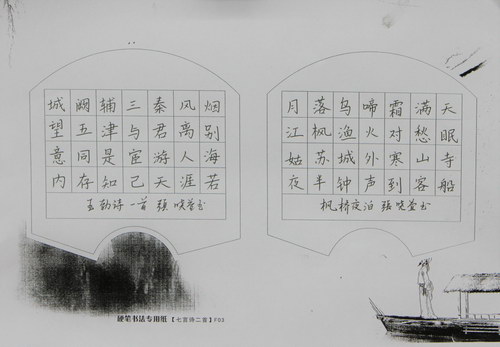 城阙辅三秦风烟
望五津与君离别
意同是宦游人海
内存知己天涯若
王勃诗一首 张晓书
月落乌啼霜满天
江枫渔火对愁眠
姑苏城外寒山寺
夜半钟声到客船
枫桥夜泊 张晓书
硬笔书法专用纸【七言诗二首】F03